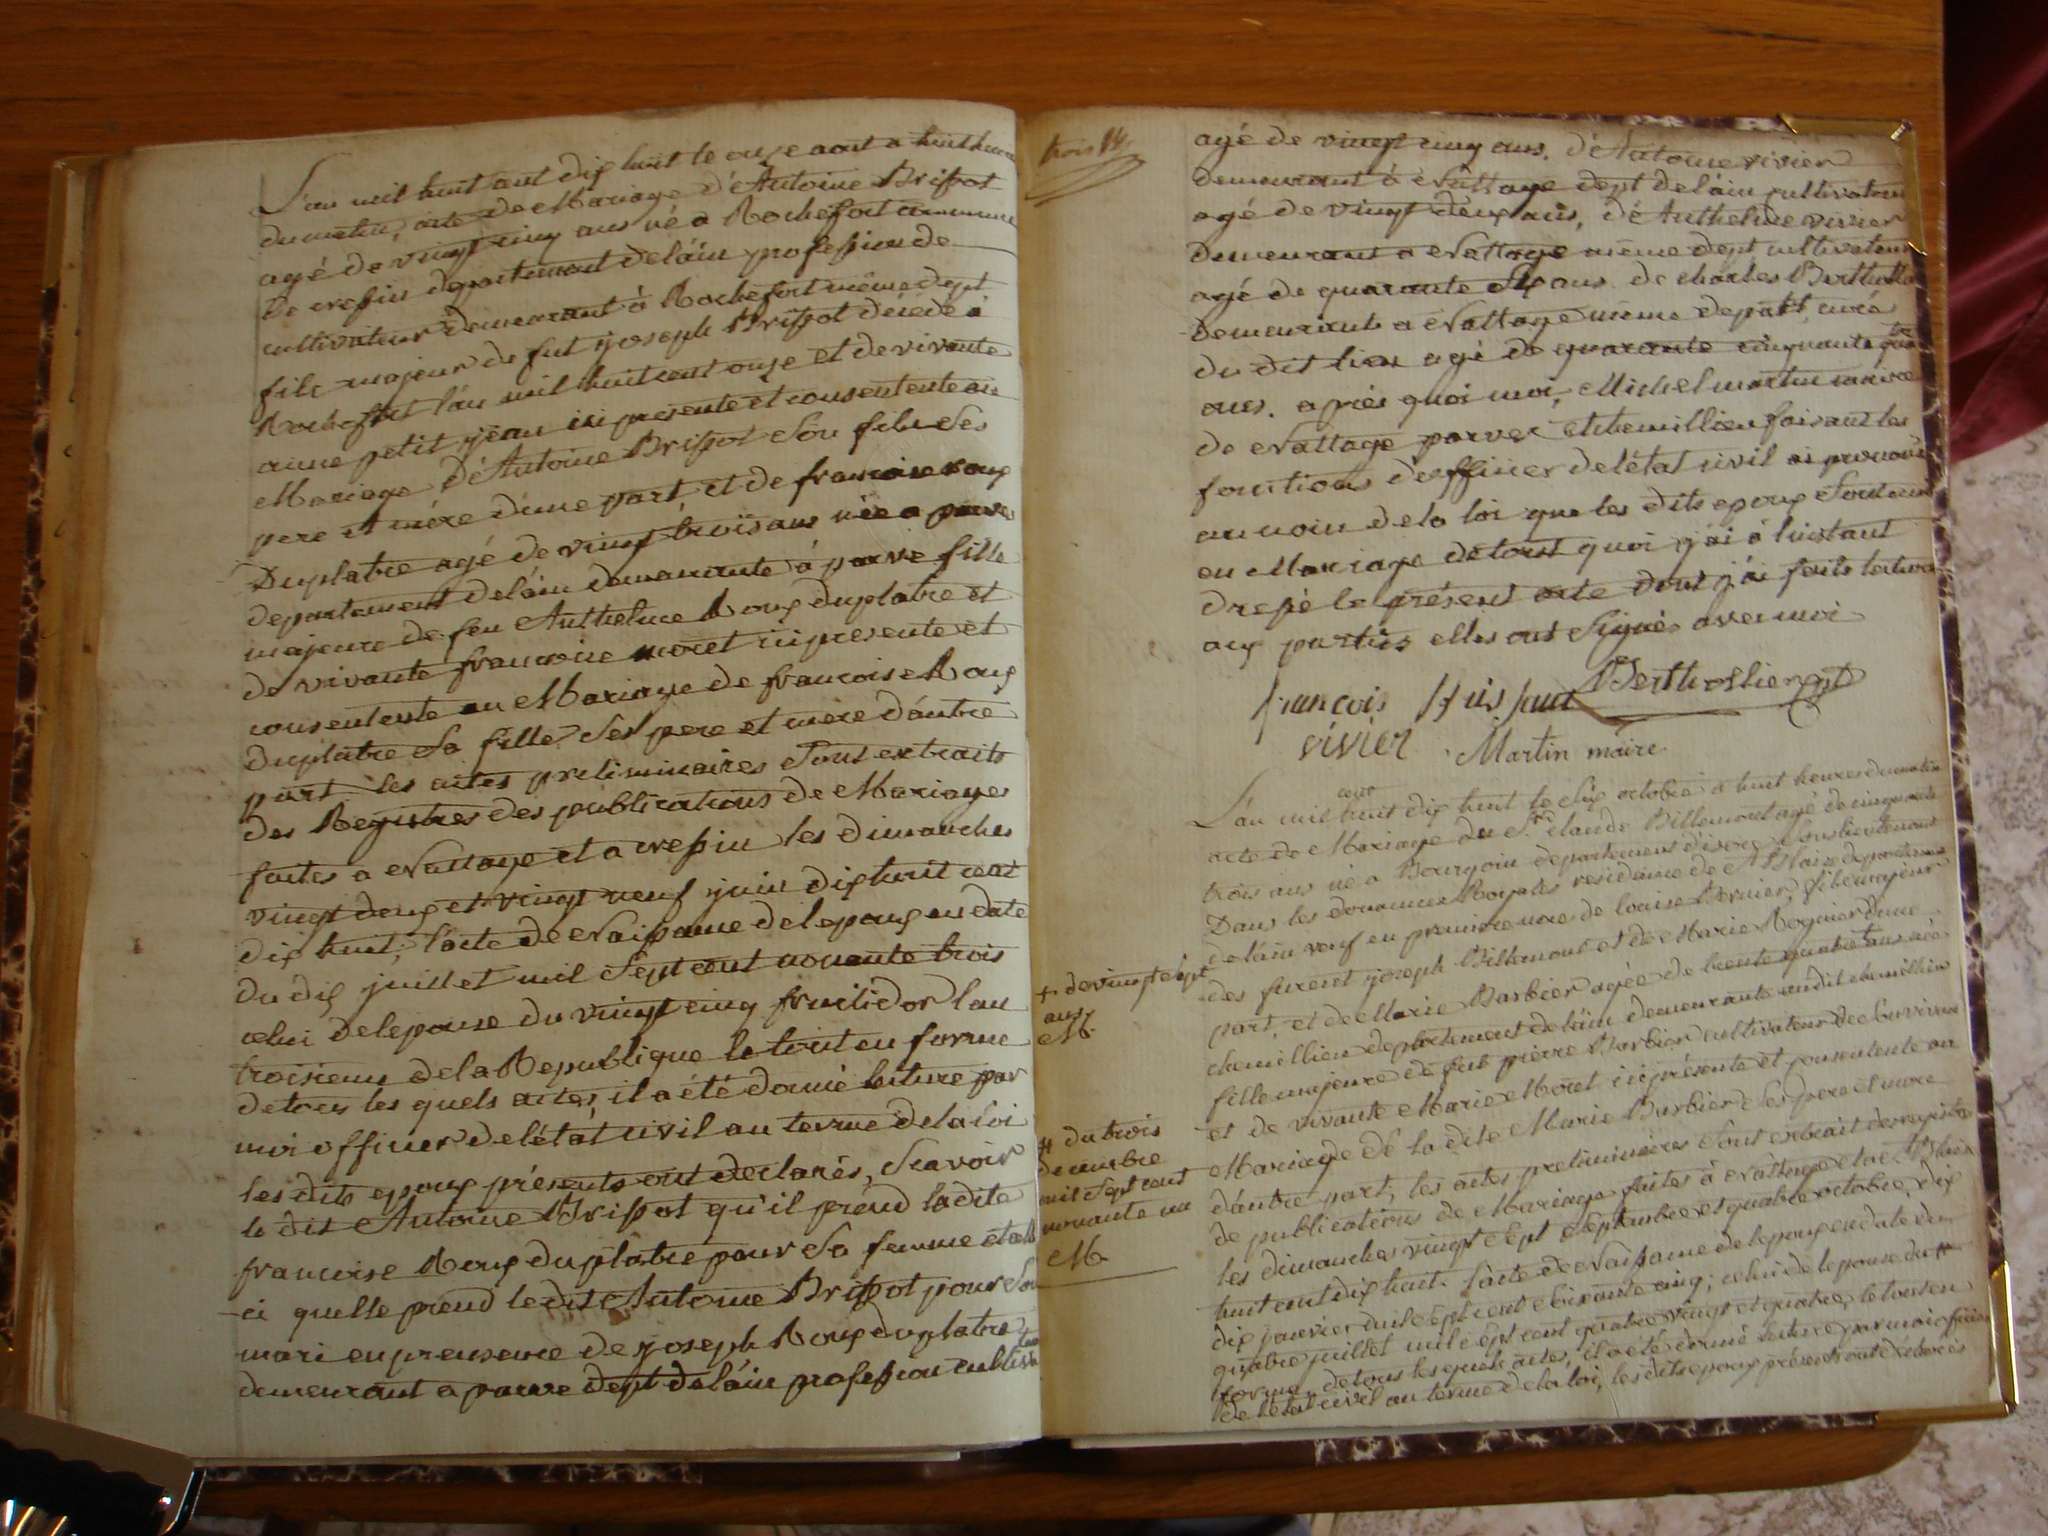 L'an mil huit cent dix huit le onze aout a huit heures
du matin, acte de Mariage d'Antoine Brissot
agé de vingt cinq ans né a Rochefort commune
de cressin departement delàin profession de
cultivateur demeurant à Rochefort même dept
fils majeur de fut joseph Brissot décédé à
Rochefort làn mil huit cent onze et de vivante
anne petit jean ici presente et consentente au
Mariage d'Antoine Brissot Son fils Ses
pere et mére d'une part, et de francoise roux
Duplatre agé de vingt trois ans née a parve
departement delàin demeurante à parve fille
majeure de feu Anthelme Roux duplatre et
de vivante francoise moret ici presente et
consentente au Mariage de francoise Roux
duplatre Sa fille Ses pere et mere d'autre
part les actes preliminaires Sont extraits
des Registres des publications de Mariages
faites a Nattage et a cressin les dimanches
vingt deux et vingt neuf juin dix huit cent
dix huit, l'acte de Naissance de lepoux en date
du dix juillet mil Sept cent nonante trois
celui delepouse du vingt cinq fruitidor lan
troisieme dela Republique le tout en forme
detous les quels actes, il a été donné lecture par
moi officier deletat civil au terme dela loi
les dits epoux présents ont declarés, Scavoir
le dit Antoine Brissot qu'il prend ladite
francoise Roux duplatre pour Sa femme et celle
ci quelle prend le dit Antoine Brissot pour Son
mari en prensence de joseph Roux duplatre
demeurant a parve dept delàin profession cultiva
teur
trois 14
agé de vingt cinq ans, d'Antoine vivier
demeurant à Nattage dept delàin cultivateur
agé de vingt deux ans, d'Anthelme vivier
demeurant a Nattage même dept cultivateur
agé de quarante Six ans de charles Berthollier
demeurant a Nattage même depart, curé
du dit lieu agé de quarante cinquante quatre
ans. apiés quoi moi, Michel martin maire
de Nattage parves et chemillieu faisant les
fonctions d'officier delétat civil ai prononcé
au nom dela loi que les dits epoux Sont unis
en Mariage detout quoi j'ai à linstant
dressé le présent acte dont j'ai faits lecture
aux parties elles ont Signés avec moi
Berthollier
francois
vivier Martin maire
cent
L'an mil huit dix huit le Six octobre a huit heures dumatin
acte de Mariage du Sr claude Billemont agé de cinquante
trois ans né a Bourgoin departement d'isere, Souslieutenant
Dans les douannes Royales residance de St Blaize departement
delàin veuf en premiere noce de louise Vernier, fils majeur
des furent joseph Billemont et de Marie Regnier d'une
part, et de Marie Barbier agée de trente quatre ans née
chemillieu departement delàin demeurante audit chemillieu
fille majeure de fut pierre Barbier cultivateur de Son vivant
et de vivante Marie Moret ici présente et consentente au
Mariage de la dite Marie Barbier Ses pere et mere
d'autre part, les actes preliminaires Sont extrait des registres
de publications de Mariage faites à Nattage et a St Blaize
les dimanches vingt Sept Septembre et quatre octobre, dix
huit cent dix huit. L'acte de Naissance de lepoux en date du
dix janvier mil Sept cent Soixante cinq; celui de lepouse du #
quatre juillet mil Sept cent quatre vingt et quatre, le tout en
forme, de tous les quels actes, il a été donné lecture par moi officier
de letat civil au terme dela loi, les dits epoux présents ont declarés
+ de vingt Sept
ans
M.
# du trois
decembre
mil Sept cent
nonante un
M.